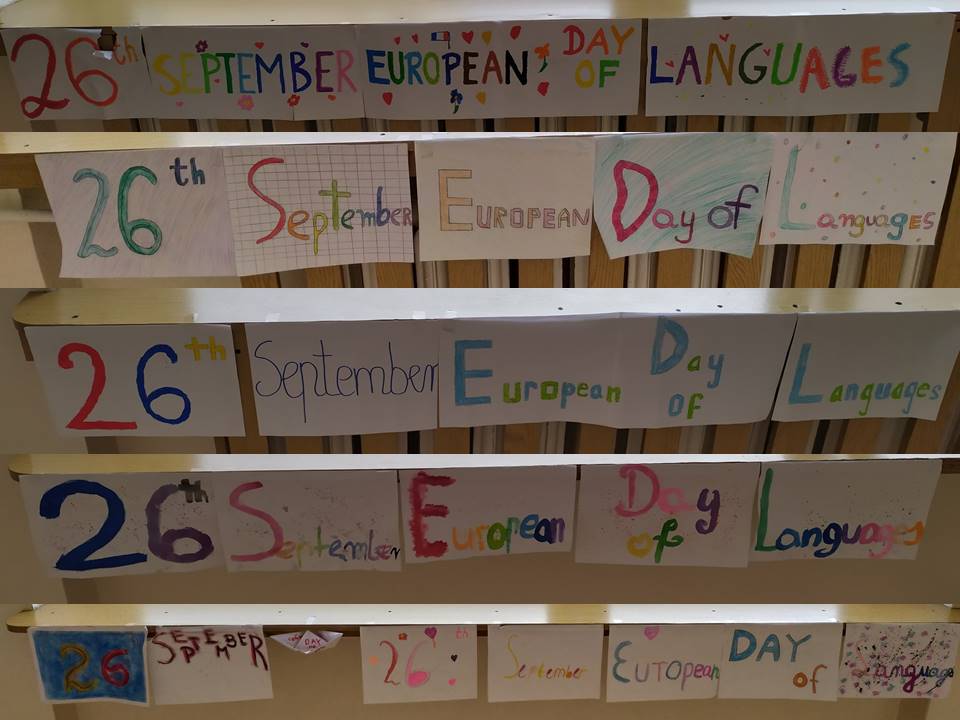 26th SEPTEMBER EUROPEAN DAY OF LANGUAGES
26th September EUROPEAN Day of Languages
26th September European Day of Languages
26th September European Day of Languages
26 SEPTEMBER DAY 26th September European DAY of Language